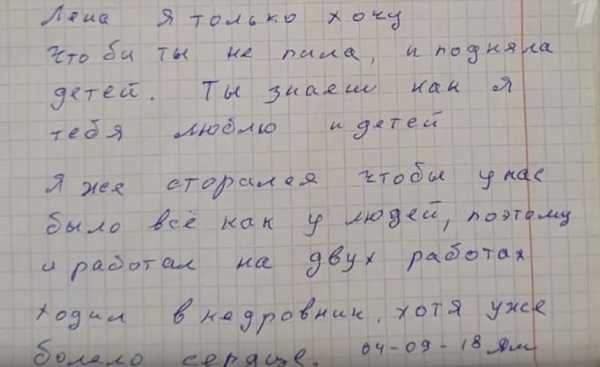 Лена я только хочу
что би ты не пила, и подняла
детей. Ты знаеш как я
тебя люблю и детей
я же сторался чтобы у нас
было всё как у людей, поэтому
и работал на двух работах
ходил в кедровник, хотя уже
болело сердце. 04-09-18